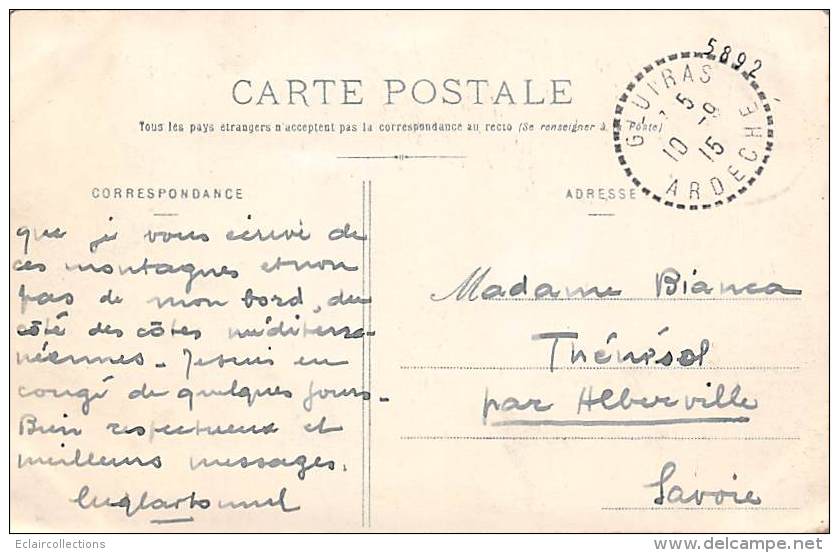 5892
CARTE POSTALE
Tous les pays étrangers n'acceptent pas la correspondance au recto (Se renseigner à la Poste)
GLUIRAS
5-9
10 15
ARDECHE
CORRESPONDANCE
ADRESSE
que je vous écrive de
ces montagnes et non
pas de mon bord, du
côté des côtes méditerra-
néennes. Je suis en
congé de quelques jours.
Bien respectueux et
meilleurs messages.
Madame Bianca
Thénésol
par Alberville
Savoie
Eclaircollections
delcampe.net